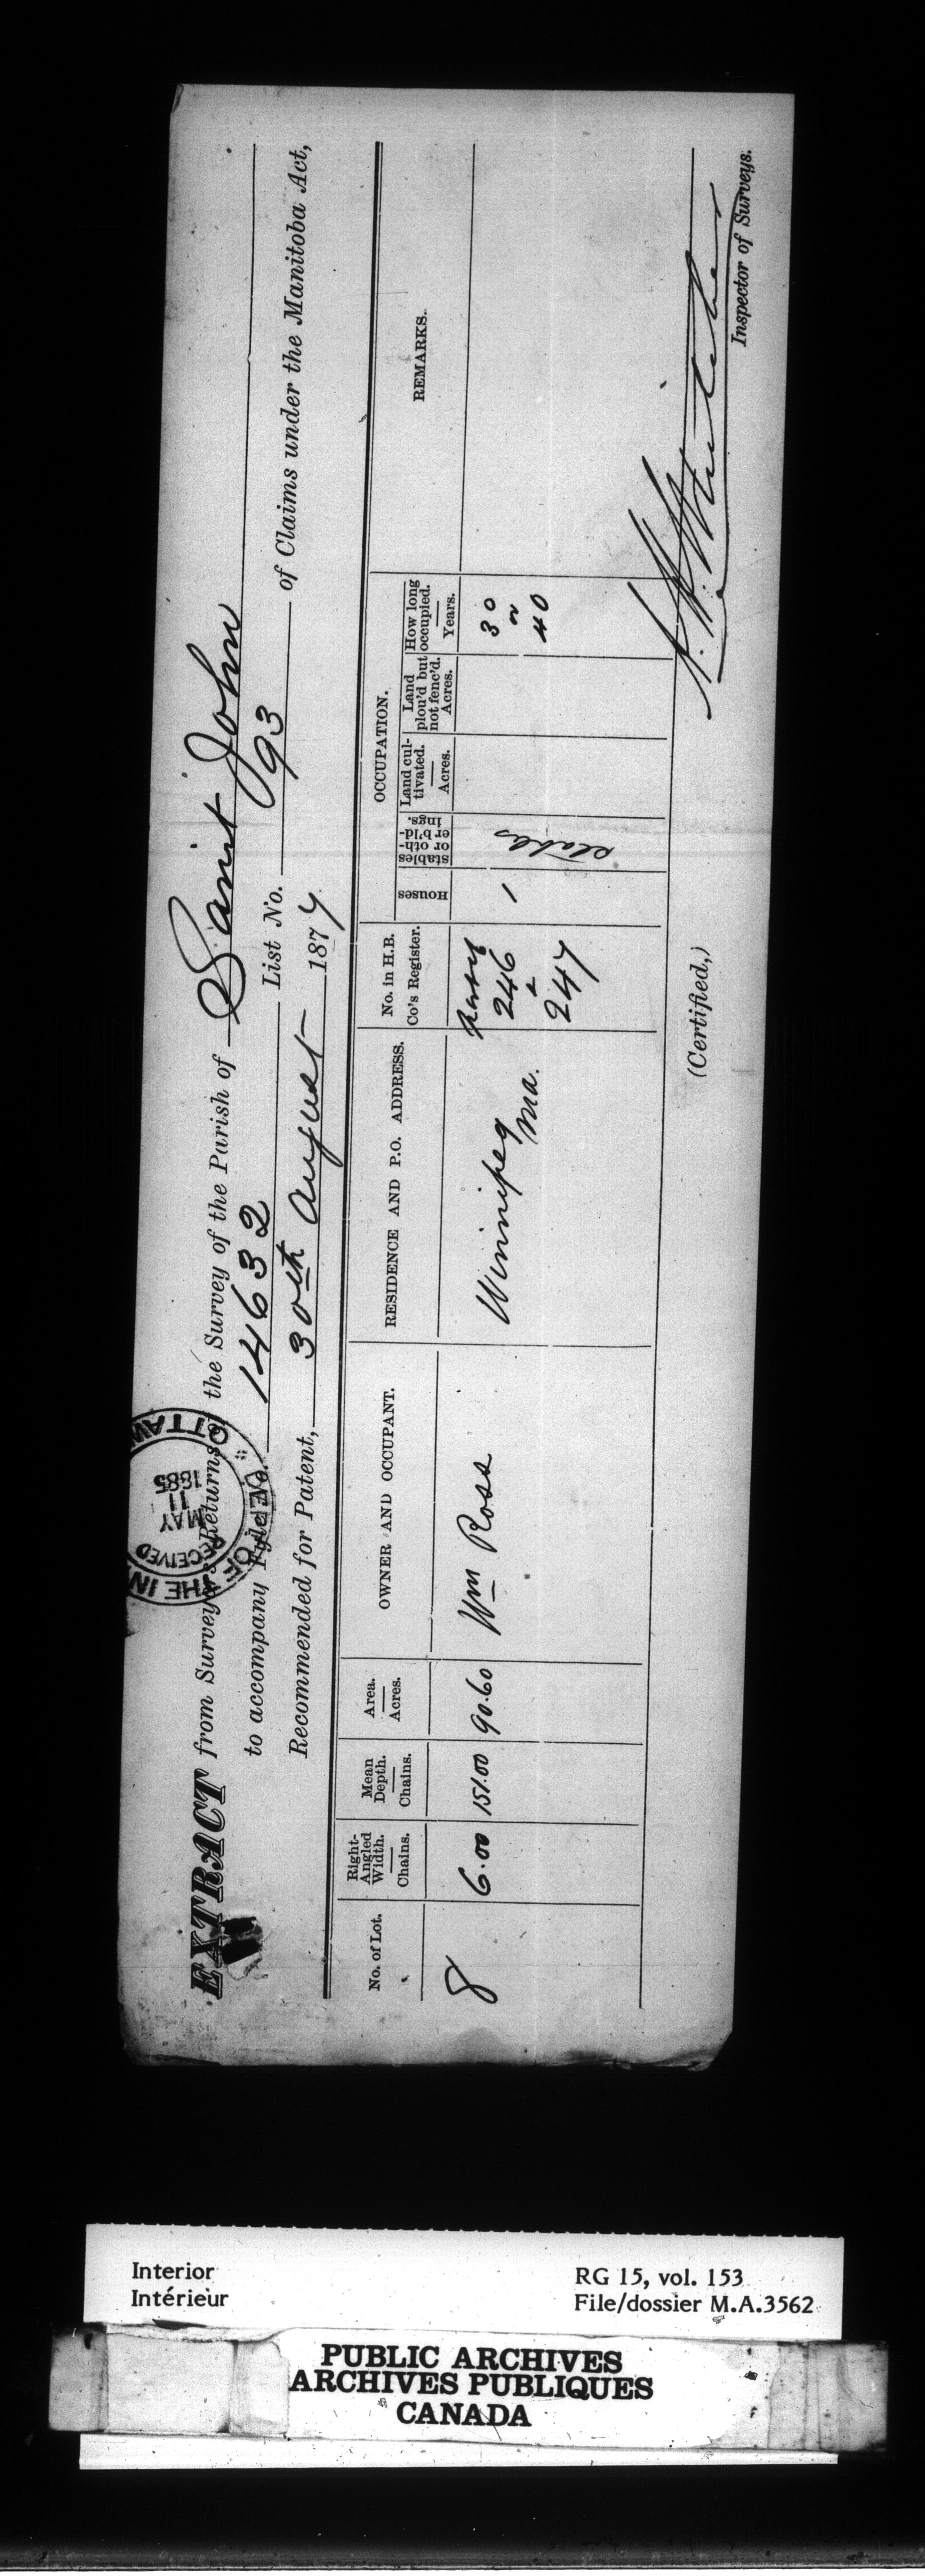 EXTRACT from Surveyor's Returns of the Survey of the Parish of Saint John
to accompany Fyle No. 14632 List No. 93 of Claims under the Manitoba Act,
Recommended for Patent, 30th August 1877
DEPT OF THE IN OTTAW
RECEIVED
MAY
11
1885
No. of Lot.
Right-
Angled
Width.
Chains.
Mean
Depth.
Chains.
Area.
Acres.
OWNER AND OCCUPANT.
RESIDENCE AND P.O. ADDRESS.
No. in H.B.
Co's Register.
OCCUPATION.
Houses
stables
or oth-
er b'ld-
ings.
Land cul-
tivated.
Acres.
Land
plou'd but
not fenc'd.
Acres.
How long
occupied.
Years.
REMARKS.
8
6.00
151.00
90.60
Wm Ross
Winnipeg
Ma.
246
247
1
stables
30
40
(Certified,)
Inspector of Surveys.
Interior
Intérieur
RG 15, vol. 153
File/dossier M.A.3562
PUBLIC ARCHIVES
ARCHIVES PUBLIQUES
CANADA